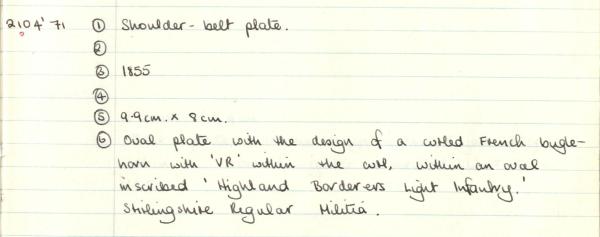 2104'71 ① Shoulder-belt plate.
②
③ 1855
④
⑤ 9.9cm. x 8cm.
⑥ Oval plate with the design of a curled French bugle-
horn with 'VR' within the curl, within an oval
inscribed 'Highland Borderers Light Infantry.'
Stirlingshire Regular Militia.